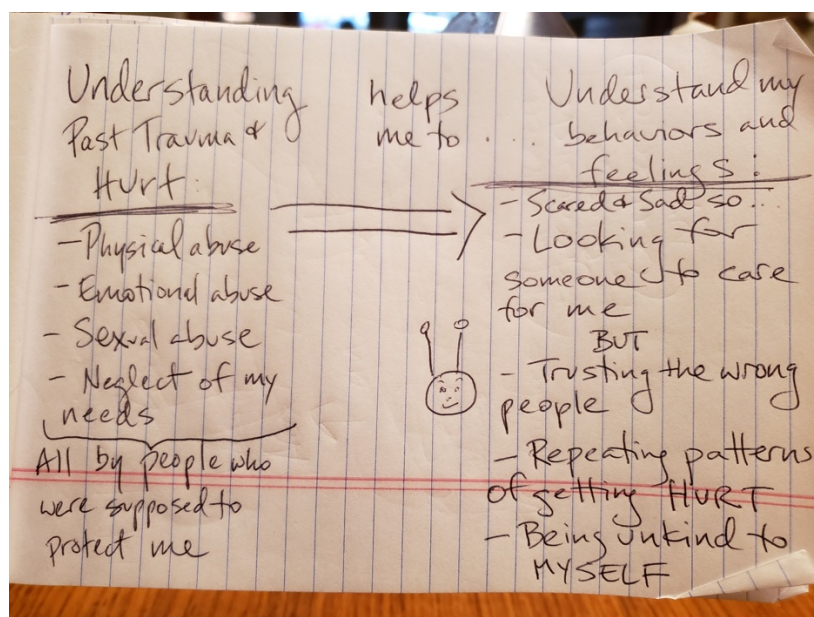 Understanding
Past Trauma &
Hurt:
- Physical abuse
- Emotional abuse
- Sexual abuse
- Neglect of my
needs
All by people who
were supposed to
protect me
helps
me to ....
Understand my
behaviors and
feelings:
- Scared & Sad so...
- Looking for
someone to care
for me
BUT
- Trusting the wrong
people
- Repeating patterns
of getting HURT
- Being unkind to
MYSELF